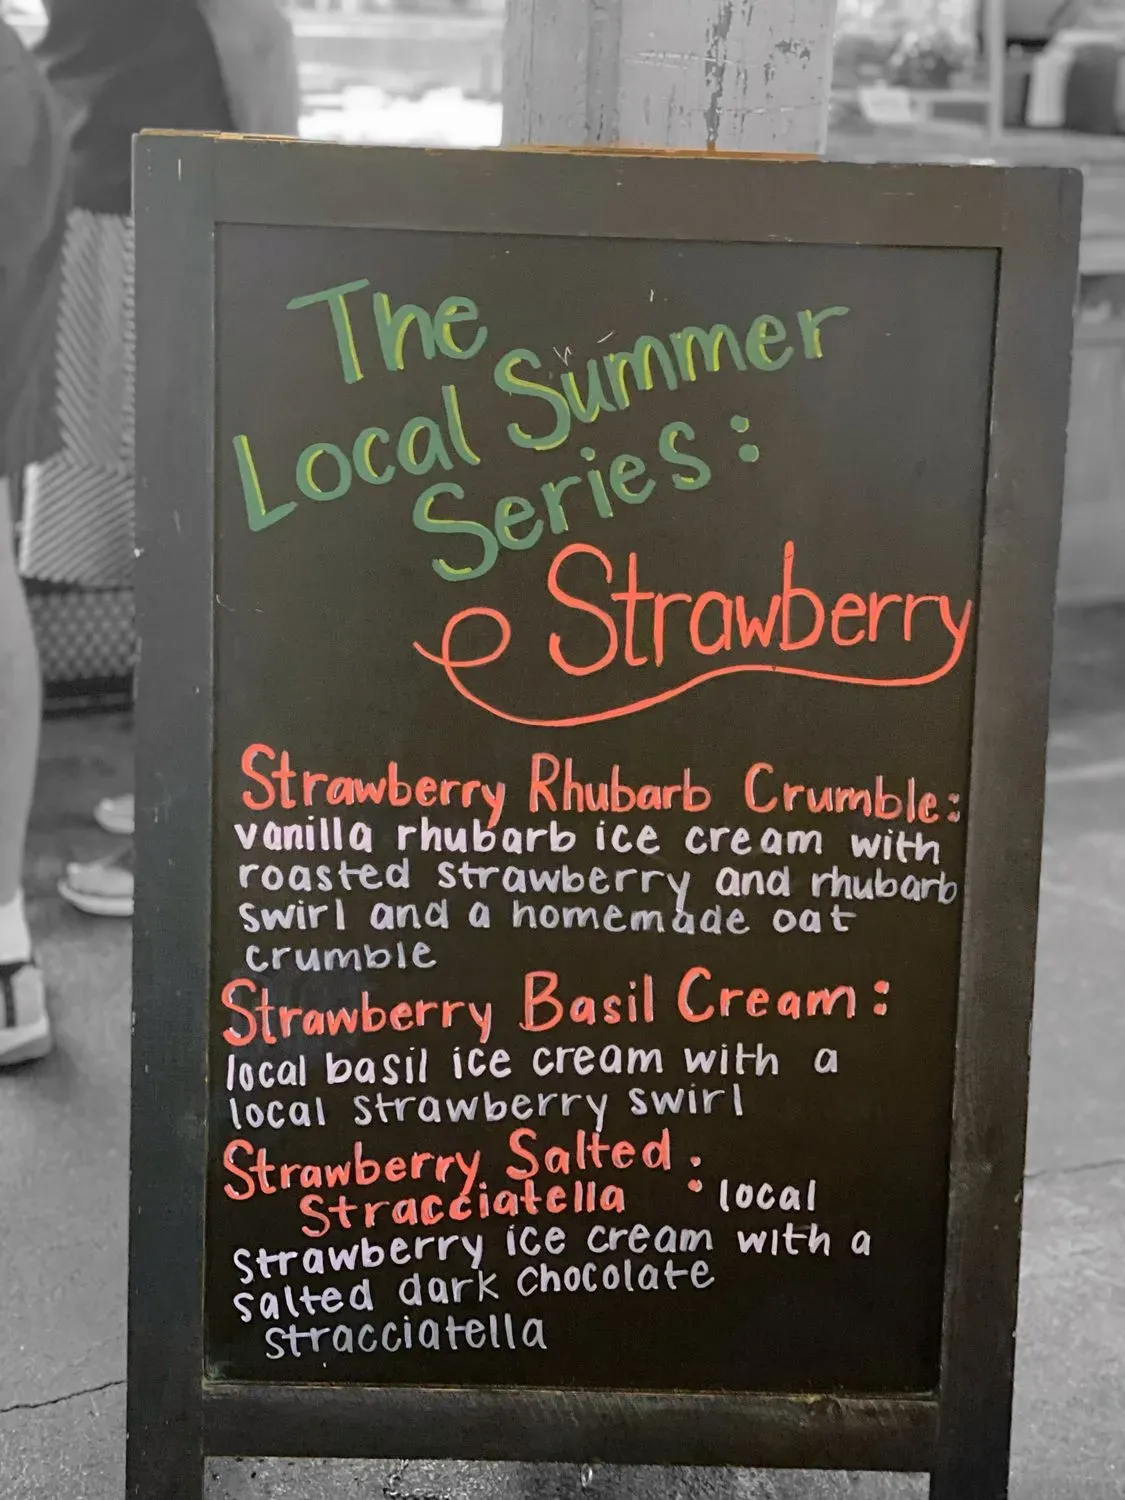 The
Local Summer
Series:
Strawberry
Strawberry Rhubarb Crumble:
vanilla rhubarb ice cream with
roasted strawberry and rhubarb
swirl and a homemade oat
crumble
Strawberry Basil Cream:
local basil ice cream with a
local strawberry swirl
Strawberry Salted
Stracciatella : local
strawberry ice cream with a
salted dark chocolate
stracciatella